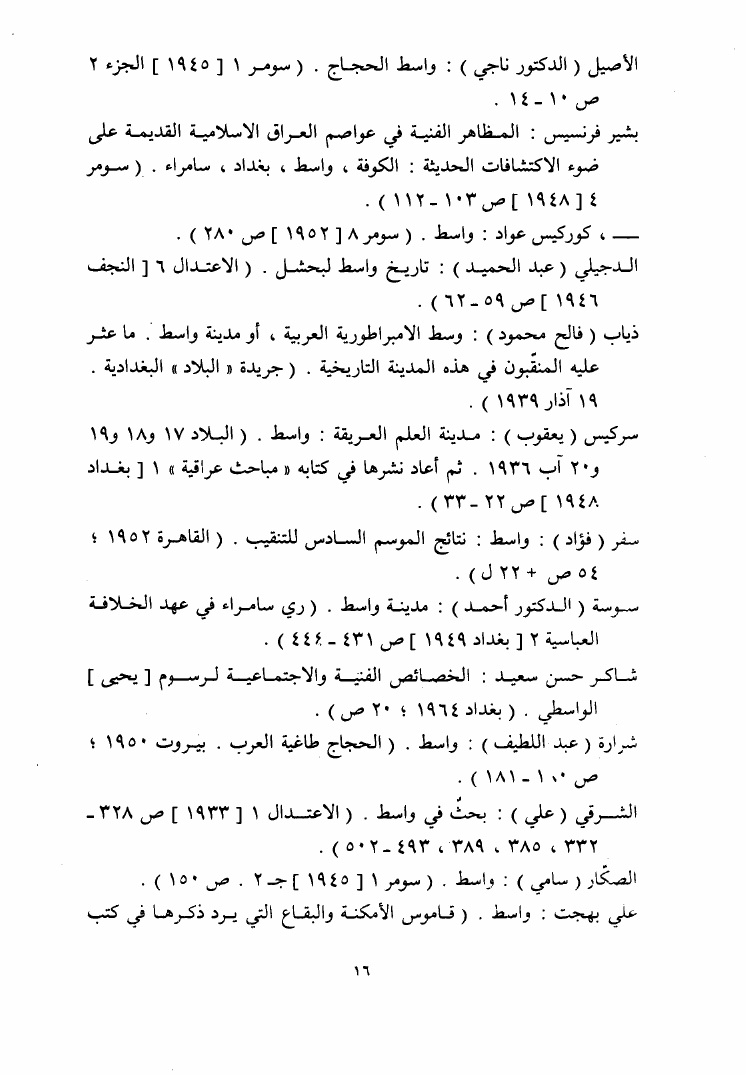 الأصيل ( الدكتور ناجي ) : واسط الحجاج . ( سومر ١ [ ١٩٤٥ ] الجزء ٢
ص ١٠ - ١٤ .
بشير فرنسيس : المظاهر الفنية في عواصم العراق الاسلامية القديمة على
ضوء الاكتشافات الحديثة : الكوفة ، واسط ، بغداد ، سامراء . ( سومر
٤ [ ١٩٤٨ ] ص ١٠٣ - ١١٢ ) .
ــــ ، كوركيس عواد : واسط . ( سومر ٨ [ ١٩٥٢ ] ص ٢٨٠ ) .
الدجيلي ( عبد الحميد ) : تاريخ واسط لبحشل . ( الاعتدال ٦ [ النجف
١٩٤٦ ] ص ٥٩ - ٦٢ ) .
ذياب ( فالح محمود ) : وسط الامبراطورية العربية ، أو مدينة واسط . ما عثر
عليه المنقّبون في هذه المدينة التاريخية . ( جريدة « البلاد » البغدادية .
١٩ آذار ١٩٣٩ ) .
سركيس ( يعقوب ) : مدينة العلم العريقة : واسط . ( البلاد ١٧ و١٨ و١٩
و٢٠ آب ١٩٣٦ . ثم أعاد نشرها في كتابه « مباحث عراقية » ١ [ بغداد
١٩٤٨ ] ص ٢٢ - ٣٣ ) .
سفر ( فؤاد ) : واسط : نتائج الموسم السادس للتنقيب . ( القاهرة ١٩٥٢ ؛
٥٤ ص + ٢٢ ل ) .
سوسة ( الدكتور أحمد ) : مدينة واسط . ( ري سامراء في عهد الخلافة
العباسية ٢ [ بغداد ١٩٤٩ ] ص ٤٣١ - ٤٤٦ ) .
شاكر حسن سعيد : الخصائص الفنية والاجتماعية لرسوم [ يحيى ]
الواسطي . ( بغداد ١٩٦٤ ؛ ٢٠ ص ) .
شرارة ( عبد اللطيف ) : واسط . ( الحجاج طاغية العرب . بيروت ١٩٥٠ ؛
ص - ١٨١ ) .
الشرقي ( علي ) : بحثٌ في واسط . ( الاعتدال ١ [ ١٩٣٣ ] ص ٣٢٨ -
٣٣٢ ، ٣٨٥ ، ٣٨٩ ، ٤٩٣ - ٥٠٢ ) .
الصكّار ( سامي ) : واسط . ( سومر ١ [ ١٩٤٥ ] جـ ٢ . ص ١٥٠ ) .
علي بهجت : واسط . ( قاموس الأمكنة والبقاع التي يرد ذكرها في كتب
١٦